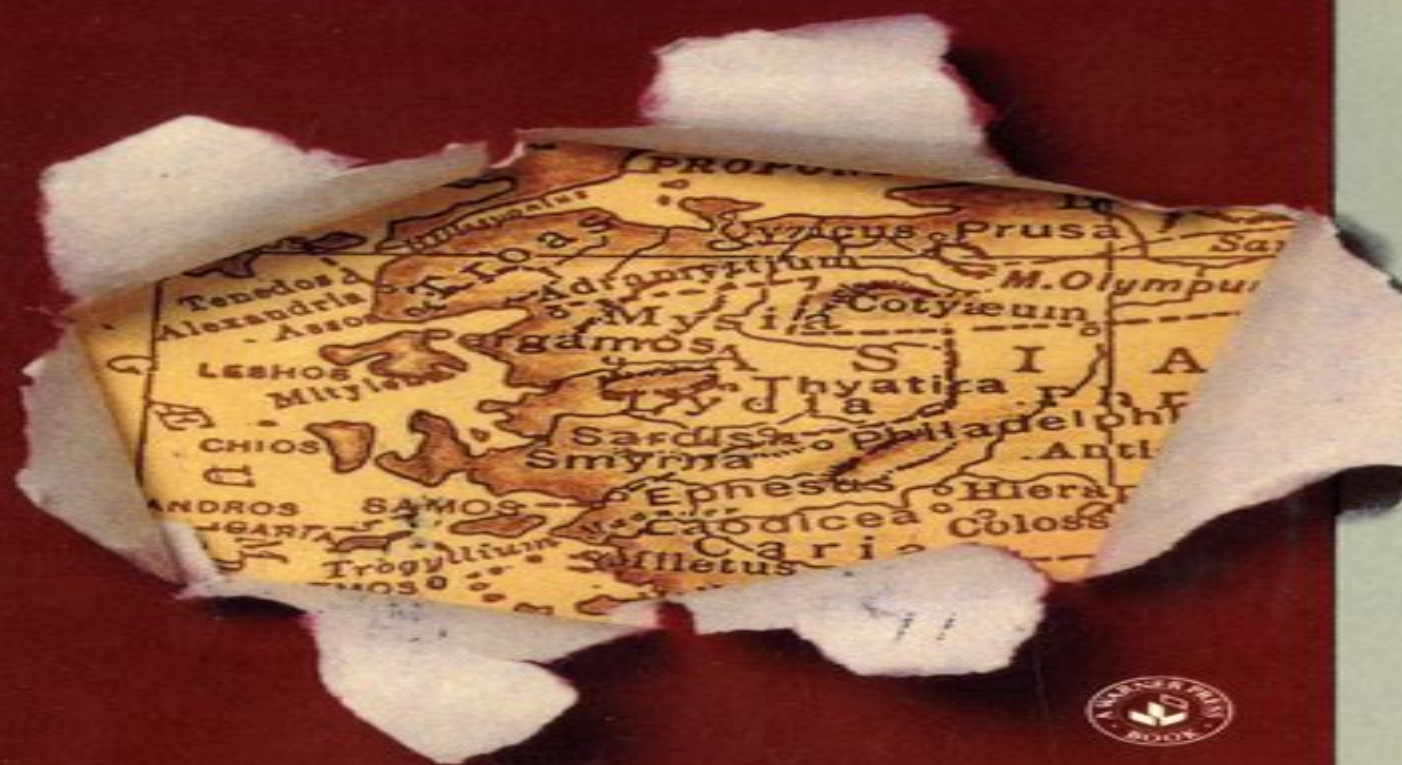 PROPON
Cyzicus
Prusa
Troas
Tenedos
Adramyttium
M. Olympu
Alexandria
Assos
Mysia
Cotyæum
Pergamos
ASIA
LESHOS
Mitylene
Thyatira
Lydia
CHIOS
Sardis
Philadelphi
Smyrna
Anti
ANDROS
SAMOS
Ephesus
Hierap
Laodicea
Coloss
Caria
Trogyllium
Miletus
A WARNER PRESS
BOOK